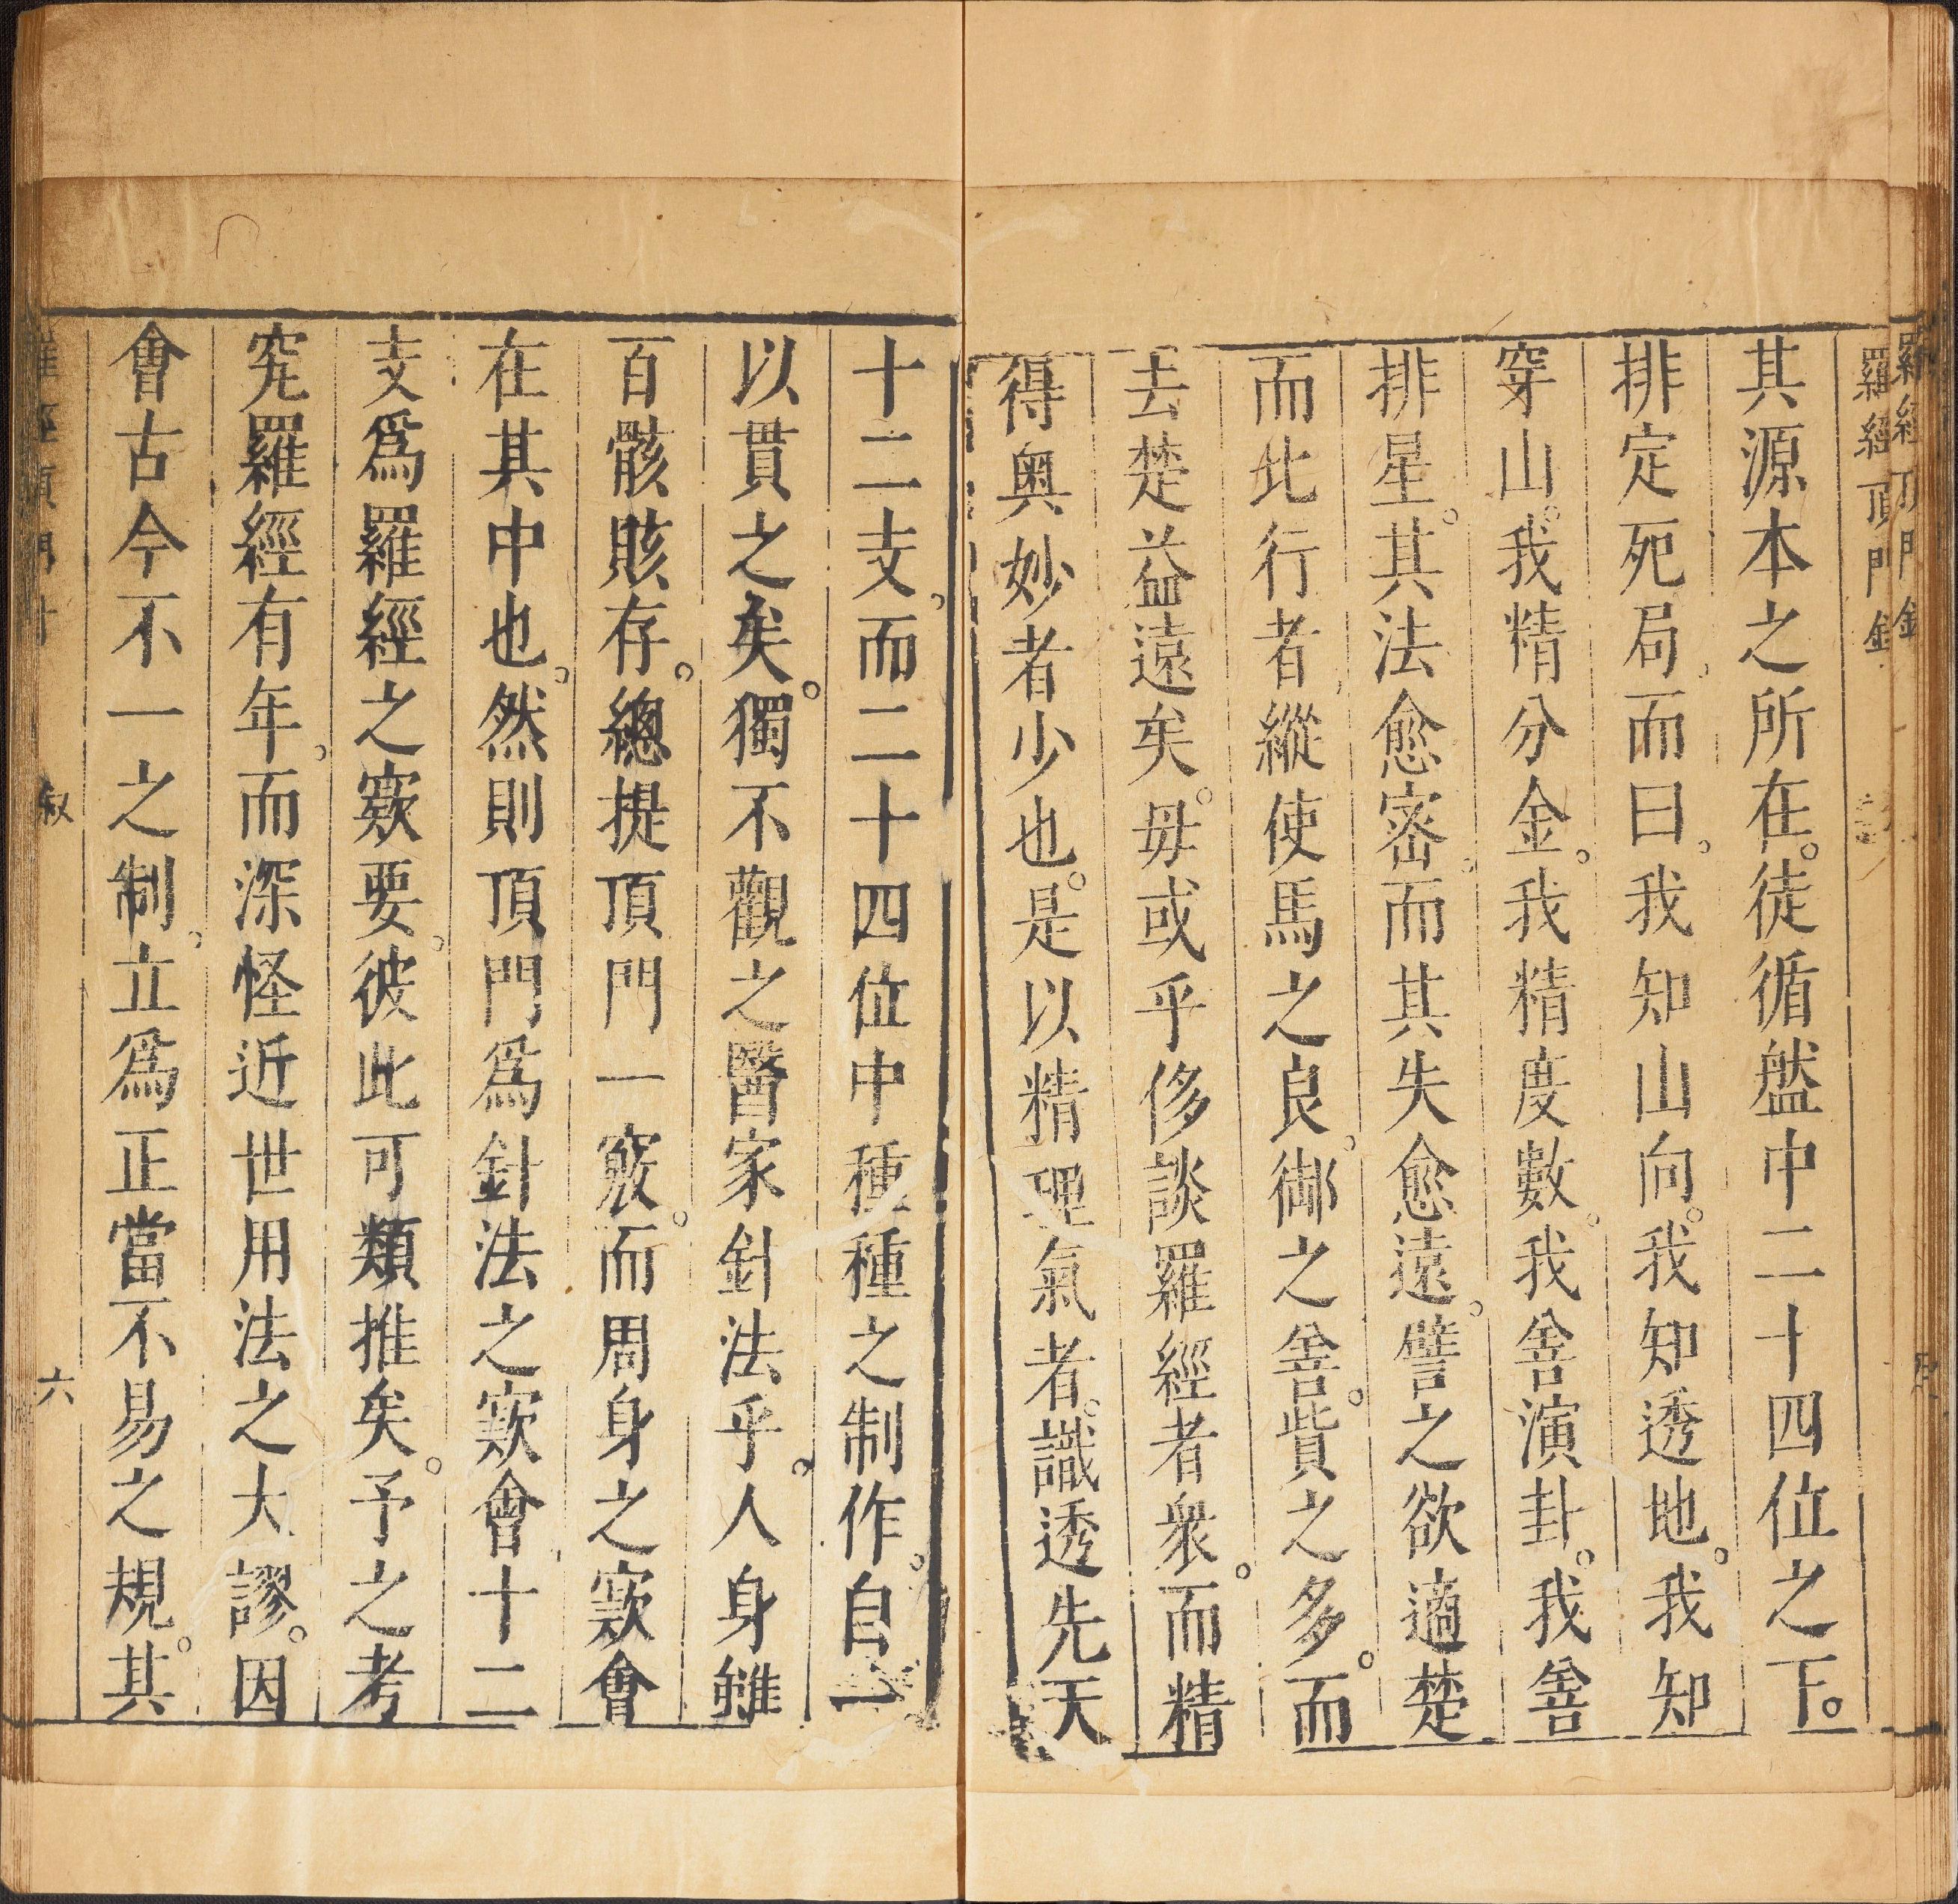 羅經頂門針
其源本之所在。徒循盤中二十四位之下。
排定死局。而曰。我知山向。我知透地。我知
穿山。我精分金。我精度數。我善演卦。我善
排星。其法愈密。而其失愈遠。譬之欲適楚
而北行者。縱使馬之良。御之善。貲之多。而
去楚益遠矣。毋或乎侈談羅經者衆。而精
得奧妙者少也。是以精理氣者。識透先天
十二支。而二十四位中種種之制作。自一
以貫之矣。獨不觀之醫家針法乎。人身雖
百骸賅存。總提頂門一竅。而周身之窾會
在其中也。然則頂門為針法之窾會。十二
支為羅經之窾要。彼此可類推矣。予之考
究羅經有年。而深怪近世用法之大謬。因
會古今不一之制。立為正當不易之規。其
羅經頂門針 叙 六